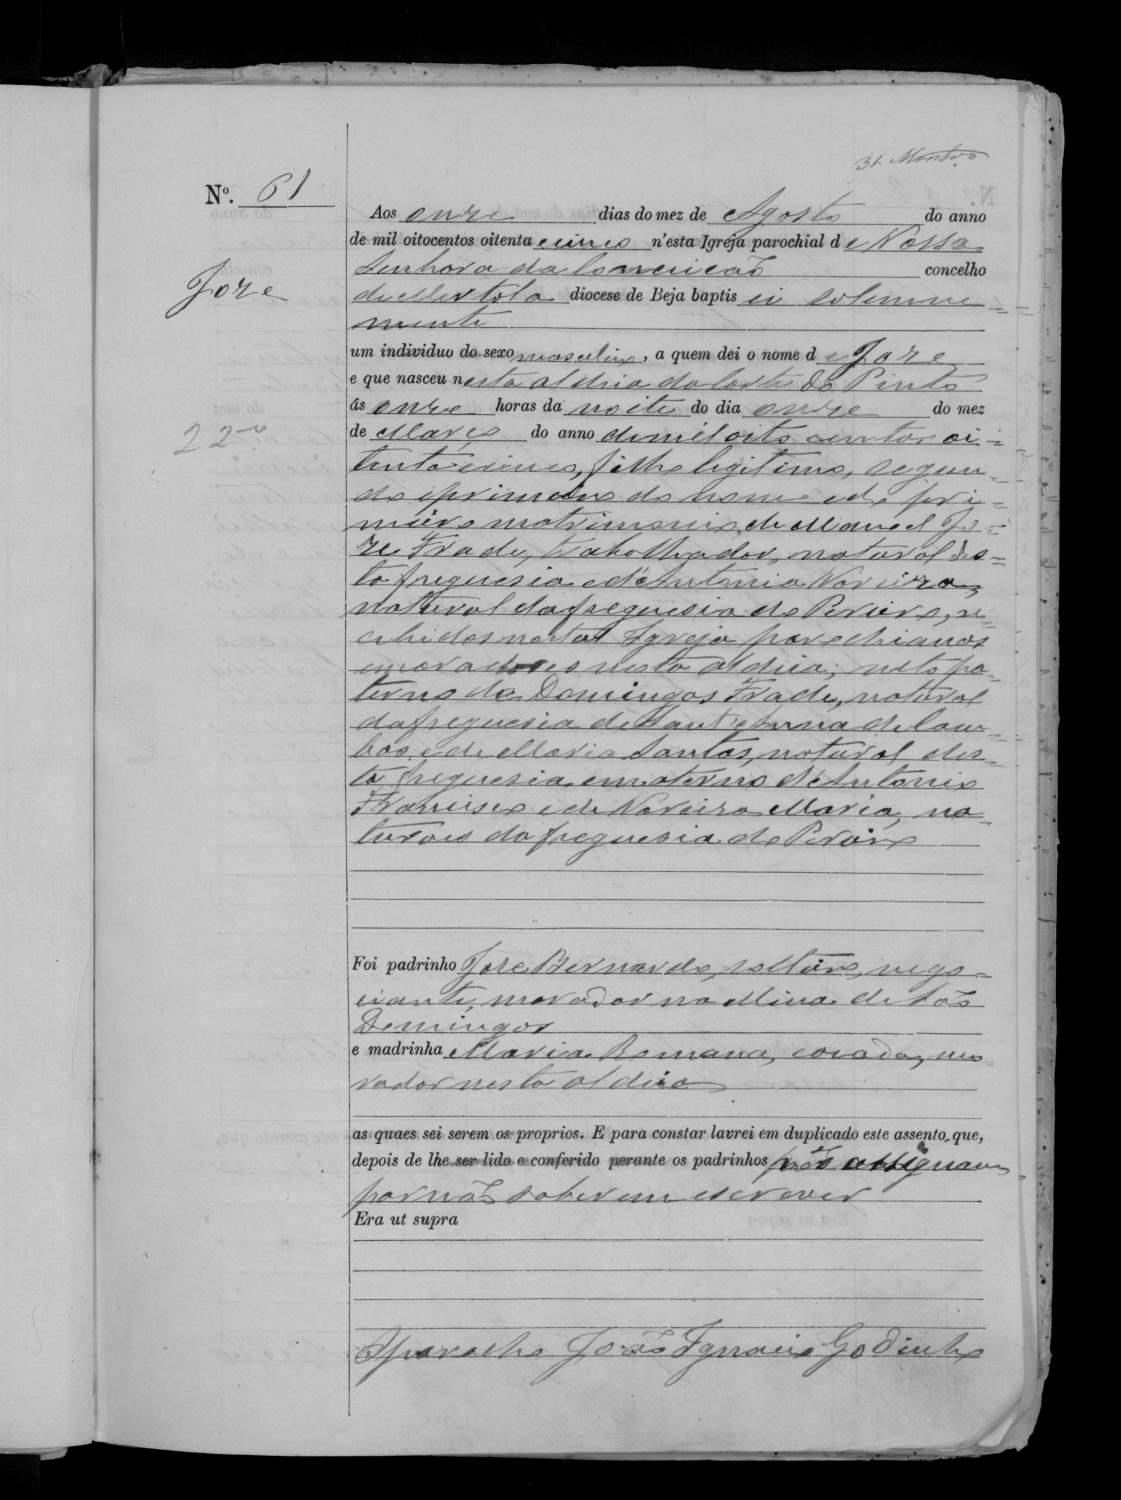 31.
Nº. 61
Aos onze dias do mez de Agosto do anno
de mil oitocentos oitenta e cinco n'esta Igreja parochial de Nossa
Senhora da Conceicão concelho
Joze
de Mertola diocese de Beja baptisei solemne=
mente
um individuo do sexo masculino, a quem dei o nome de Joze
e que nasceu nesta aldeia da Corte do Pinto
ás onze horas da noite do dia onze do mez
22
de Março do anno de mil oito centos oi=
tenta e cinco, filho legitimo, segun=
do e primeiro do nome e do pri=
meiro matrimonio, de Manoel Jo=
ze Frade, trabalhador, natural des=
ta freguesia e d'Antonia Nareiza,
natural da freguesia do Pereiro, re=
cebidos nesta Igreja parochianos
e moradores nesta aldeia; neto pa=
terno de Domingos Frade, natural
da freguesia de Sant'Anna de Cam=
bas e de Maria Santos, natural des=
ta freguesia e materno d'Antonio
Francisco e de Nareiza Maria, na=
turaes da freguesia do Pereiro
Foi padrinho Joze Bernardo, solteiro, nego=
ciante, morador na Mina de São
Domingos
e madrinha Maria Romana, cazada, mo=
rador nesta aldeia
as quaes sei serem os proprios. E para constar lavrei em duplicado este assento, que,
depois de lhe ser lido e conferido perante os padrinhos não assignam
por não saberem escrever
Era ut supra
O Parocho João Ignacio Godinho